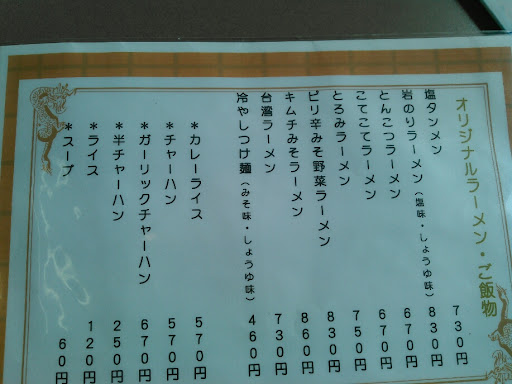 オリジナルラーメン・ご飯物
塩タンメン 730円
岩のりラーメン（塩味・しょうゆ味） 830円
とんこつラーメン 670円
こてこてラーメン 670円
とろみラーメン 750円
ピリ辛みそ野菜ラーメン 830円
キムチみそラーメン 860円
台湾ラーメン 730円
冷やしつけ麺（みそ味・しょうゆ味） 460円
＊カレーライス 570円
＊チャーハン 570円
＊ガーリックチャーハン 670円
＊半チャーハン 250円
＊ライス 120円
＊スープ 60円